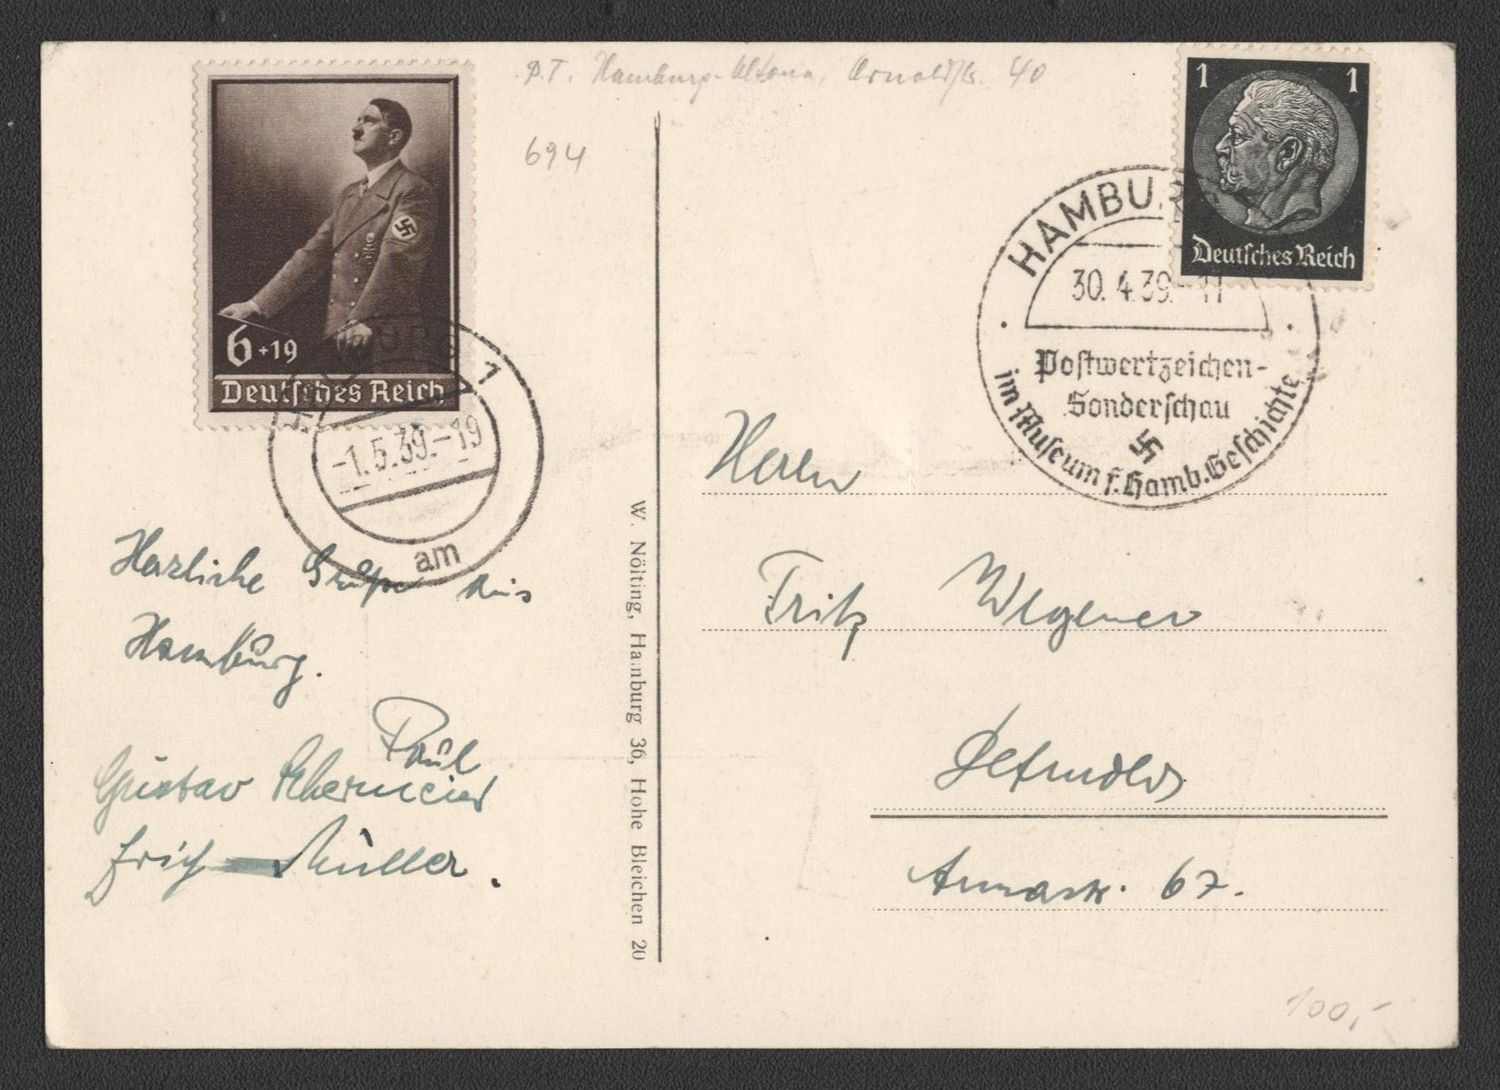 P.T. Hamburg-Altona, Arnoldstr. 40
694
6+19
Deutsches Reich
HAMBURG 1
-1.5.39.-19
am
Herzliche Grüße aus
Hamburg.
Paul
Gustav
Erich Müller.
W. Nölting, Hamburg 36, Hohe Bleichen 20
1 1
Deutsches Reich
HAMBURG
30.4.39.-11
Postwertzeichen-
Sonderschau
im Museum f. Hamb. Geschichte
Herrn
Fritz Wegener
Detmold
67.
100,-